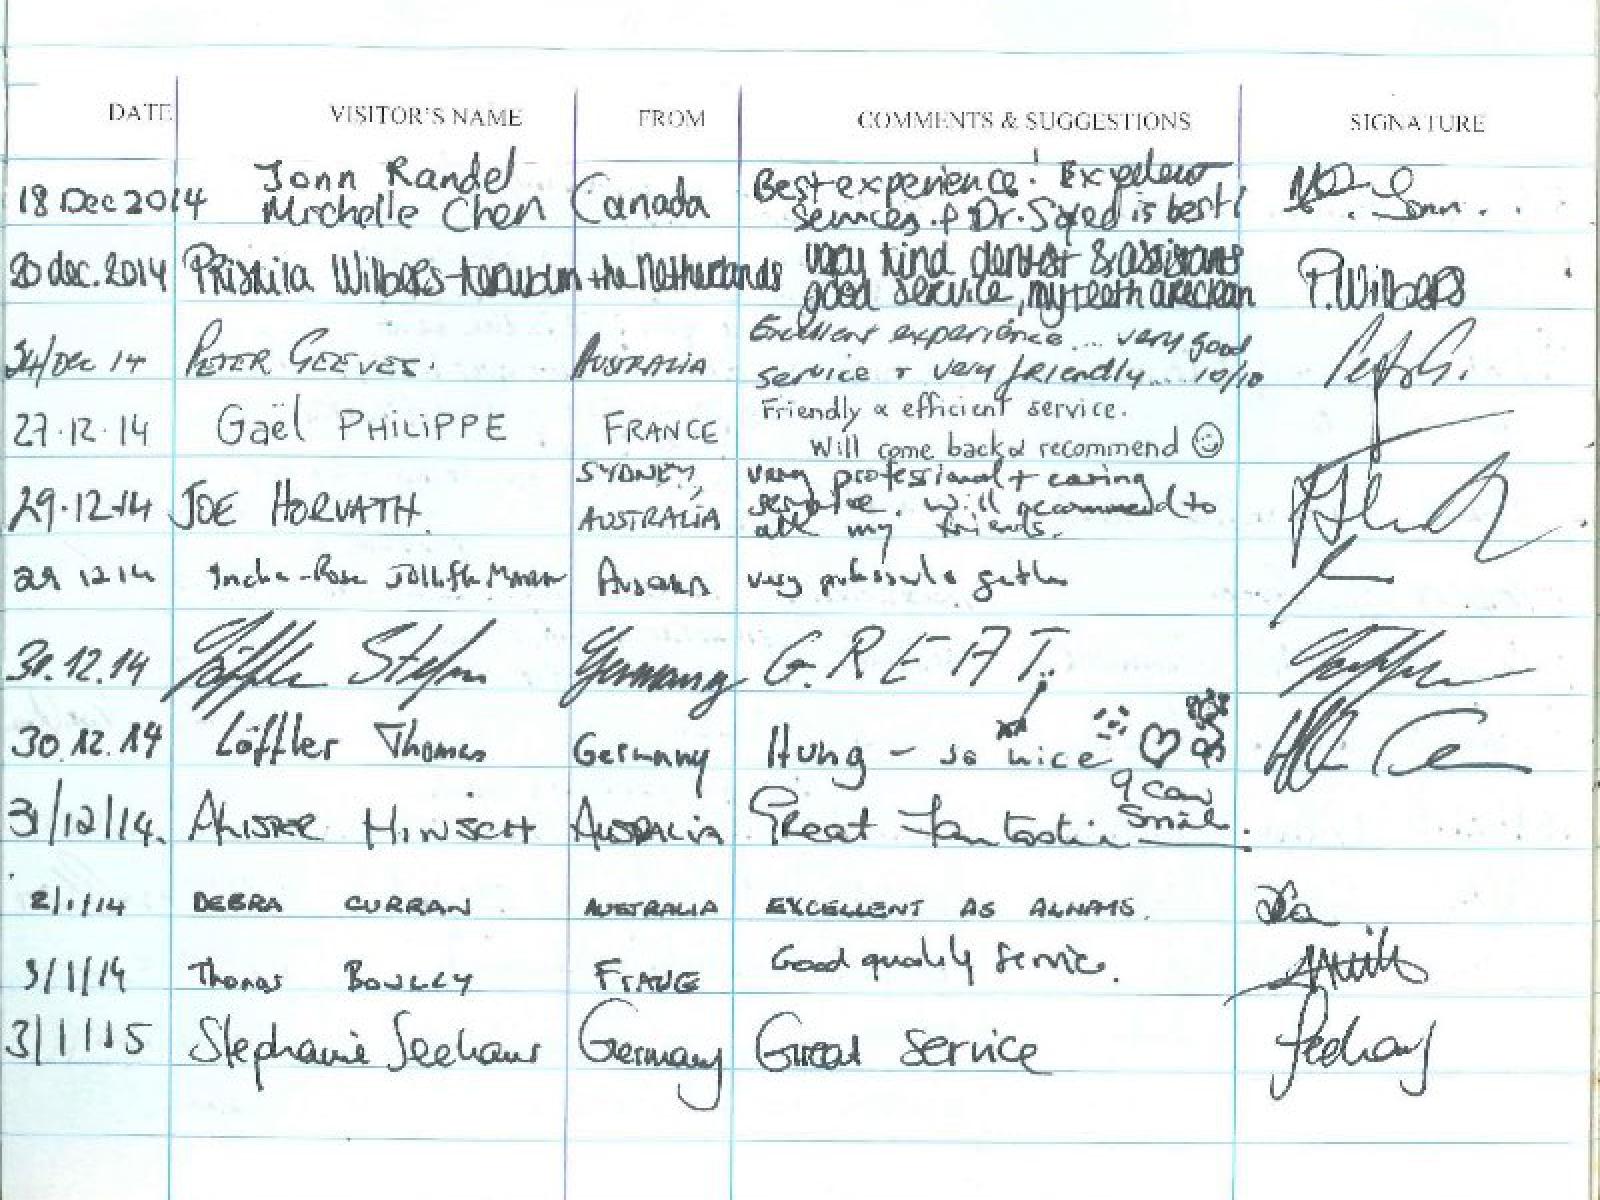 DATE VISITOR'S NAME FROM COMMENTS & SUGGESTIONS SIGNATURE
Jonn Randel Best experience! Excellent
18 Dec 2014 Michelle Chen Canada Services. & Dr. Sayed is best!
very kind dentist & assistants
20 dec. 2014 Priskila Wilbers- the Netherlands good service, my teeth are clean P. Wilbers
Excellent experience... very good
24/Dec 14 PETER GEEVES. AUSTRALIA service + very friendly... 10/10
Friendly & efficient service.
27.12.14 Gaël PHILIPPE FRANCE Will come back & recommend
SYDNEY, very professional + caring
29.12.14 JOE HORVATH. AUSTRALIA service. Will recommend to
all my friends.
29 12 14 very
30.12.14 Löffler Stefan Germany G.R.E.A.T.
30.12.14 Löffler Thomas Germany Hung - so nice
31/12/14. ALISTER HINSCH AUSTRALIA Great Fantastic I can Smile.
2/1/14 DEBRA CURRAN AUSTRALIA EXCELLENT AS ALWAYS.
3/1/14 Thomas BOULLY FRANCE Good quality service.
3/1/15 Stephanie Seehaus Germany Great service Seehaus